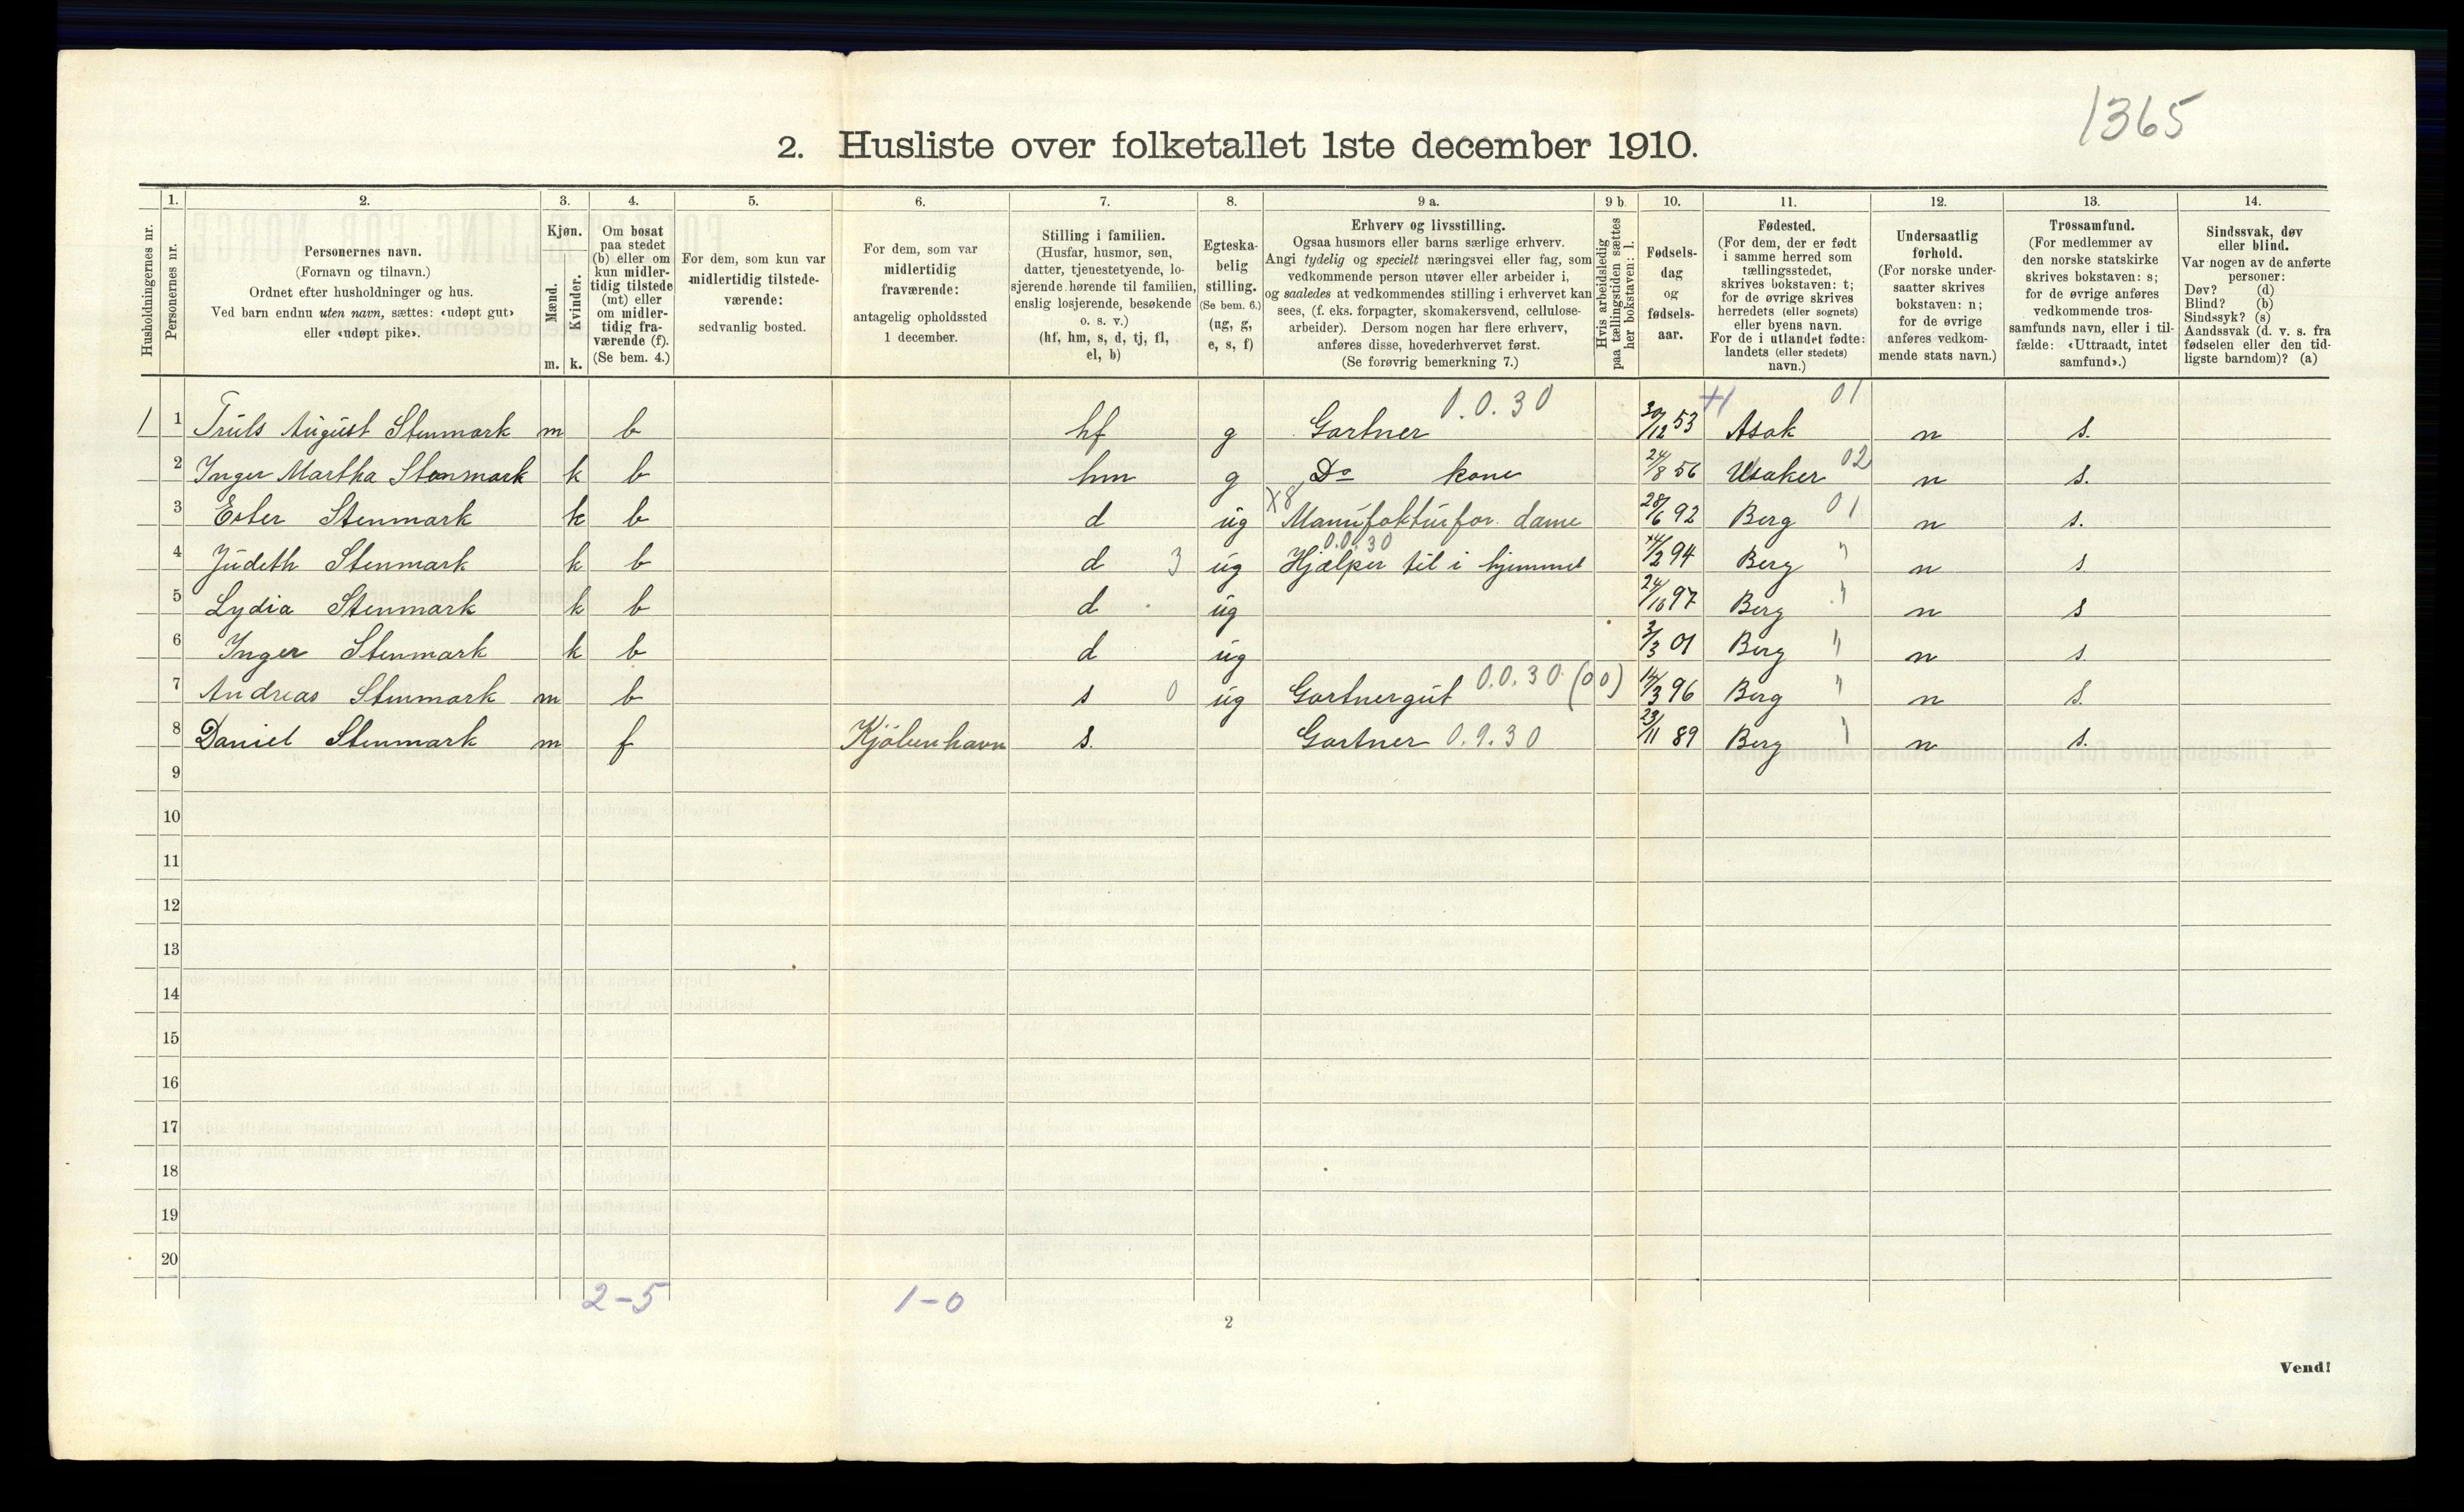 1365
2. Husliste over folketallet 1ste december 1910.
Husholdningernes nr.
1. Personernes nr.
2.
Personernes navn.
(Fornavn og tilnavn.)
Ordnet efter husholdninger og hus.
Ved barn endnu uten navn, sættes: «udøpt gut»
eller «udøpt pike».
3.
Kjøn.
Mænd. m.
Kvinder. k.
4.
Om bosat
paa stedet
(b) eller om
kun midler-
tidig tilstede
(mt) eller
om midler-
tidig fra-
værende (f).
(Se bem. 4.)
5.
For dem, som kun var
midlertidig tilstede-
værende:
sedvanlig bosted.
6.
For dem, som var
midlertidig
fraværende:
antagelig opholdssted
1 december.
7.
Stilling i familien.
(Husfar, husmor, søn,
datter, tjenestetyende, lo-
sjerende hørende til familien,
enslig losjerende, besøkende
o. s. v.)
(hf, hm, s, d, tj, fl,
el, b)
8.
Egteska-
belig
stilling.
(Se bem. 6.)
(ug, g,
e, s, f)
9 a.
Erhverv og livsstilling.
Ogsaa husmors eller barns særlige erhverv.
Angi tydelig og specielt næringsvei eller fag, som
vedkommende person utøver eller arbeider i,
og saaledes at vedkommendes stilling i erhvervet kan
sees, (f. eks. forpagter, skomakersvend, cellulose-
arbeider). Dersom nogen har flere erhverv,
anføres disse, hovederhvervet først.
(Se forøvrig bemerkning 7.)
9 b.
Hvis arbeidsledig
paa tællingstiden sættes
her bokstaven: l.
10.
Fødsels-
dag
og
fødsels-
aar.
11.
Fødested.
(For dem, der er født
i samme herred som
tællingsstedet,
skrives bokstaven: t;
for de øvrige skrives
herredets (eller sognets)
eller byens navn.
For de i utlandet fødte:
landets (eller stedets)
navn.)
12.
Undersaatlig
forhold.
(For norske under-
saatter skrives
bokstaven: n;
for de øvrige
anføres vedkom-
mende stats navn.)
13.
Trossamfund.
(For medlemmer av
den norske statskirke
skrives bokstaven: s;
for de øvrige anføres
vedkommende tros-
samfunds navn, eller i til-
fælde: «Uttraadt, intet
samfund».)
14.
Sindssvak, døv
eller blind.
Var nogen av de anførte
personer:
Døv? (d)
Blind? (b)
Sindssyk? (s)
Aandssvak (d. v. s. fra
fødselen eller den tid-
ligste barndom)? (a)
1 1 Truls August Stenmark m b hf g Gartner 0.0.30 30/12 53 Asak 01 n s.
2 Inger Martha Stenmark k b hm g Do kone 24/8 56 Usaker 02 n s.
3 Ester Stenmark k b d ug X8 Manufakturfor. dame 28/6 92 Berg 01 n s.
4 Judeth Stenmark k b d 3 ug 0.0.30 Hjælper til i hjemmet 14/2 94 Berg " n s.
5 Lydia Stenmark k b d ug 24/10 97 Berg " n s
6 Inger Stenmark k b d ug 3/3 01 Berg " n s.
7 Andreas Stenmark m b s 0 ug Gartnergut 0.0.30 (00) 14/3 96 Berg " n s.
8 Daniel Stenmark m f Kjøbenhavn s. Gartner 0.9.30 23/11 89 Berg " n s.
9
10
11
12
13
14
15
16
17
18
19
20
2-5 1-0
2
Vend!